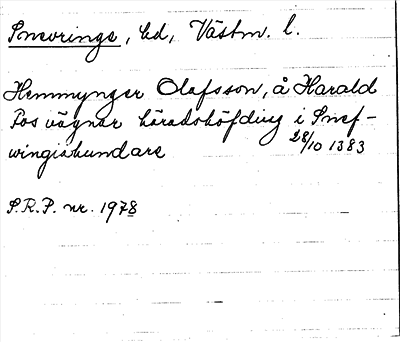 Snevringe, hd, Västm. l.
Hemmynger Olafsson, å Harald
Pos vägnar häradshöfding i Snef-
wingiahundare 28/10 1383
S.R.P. nr. 1978